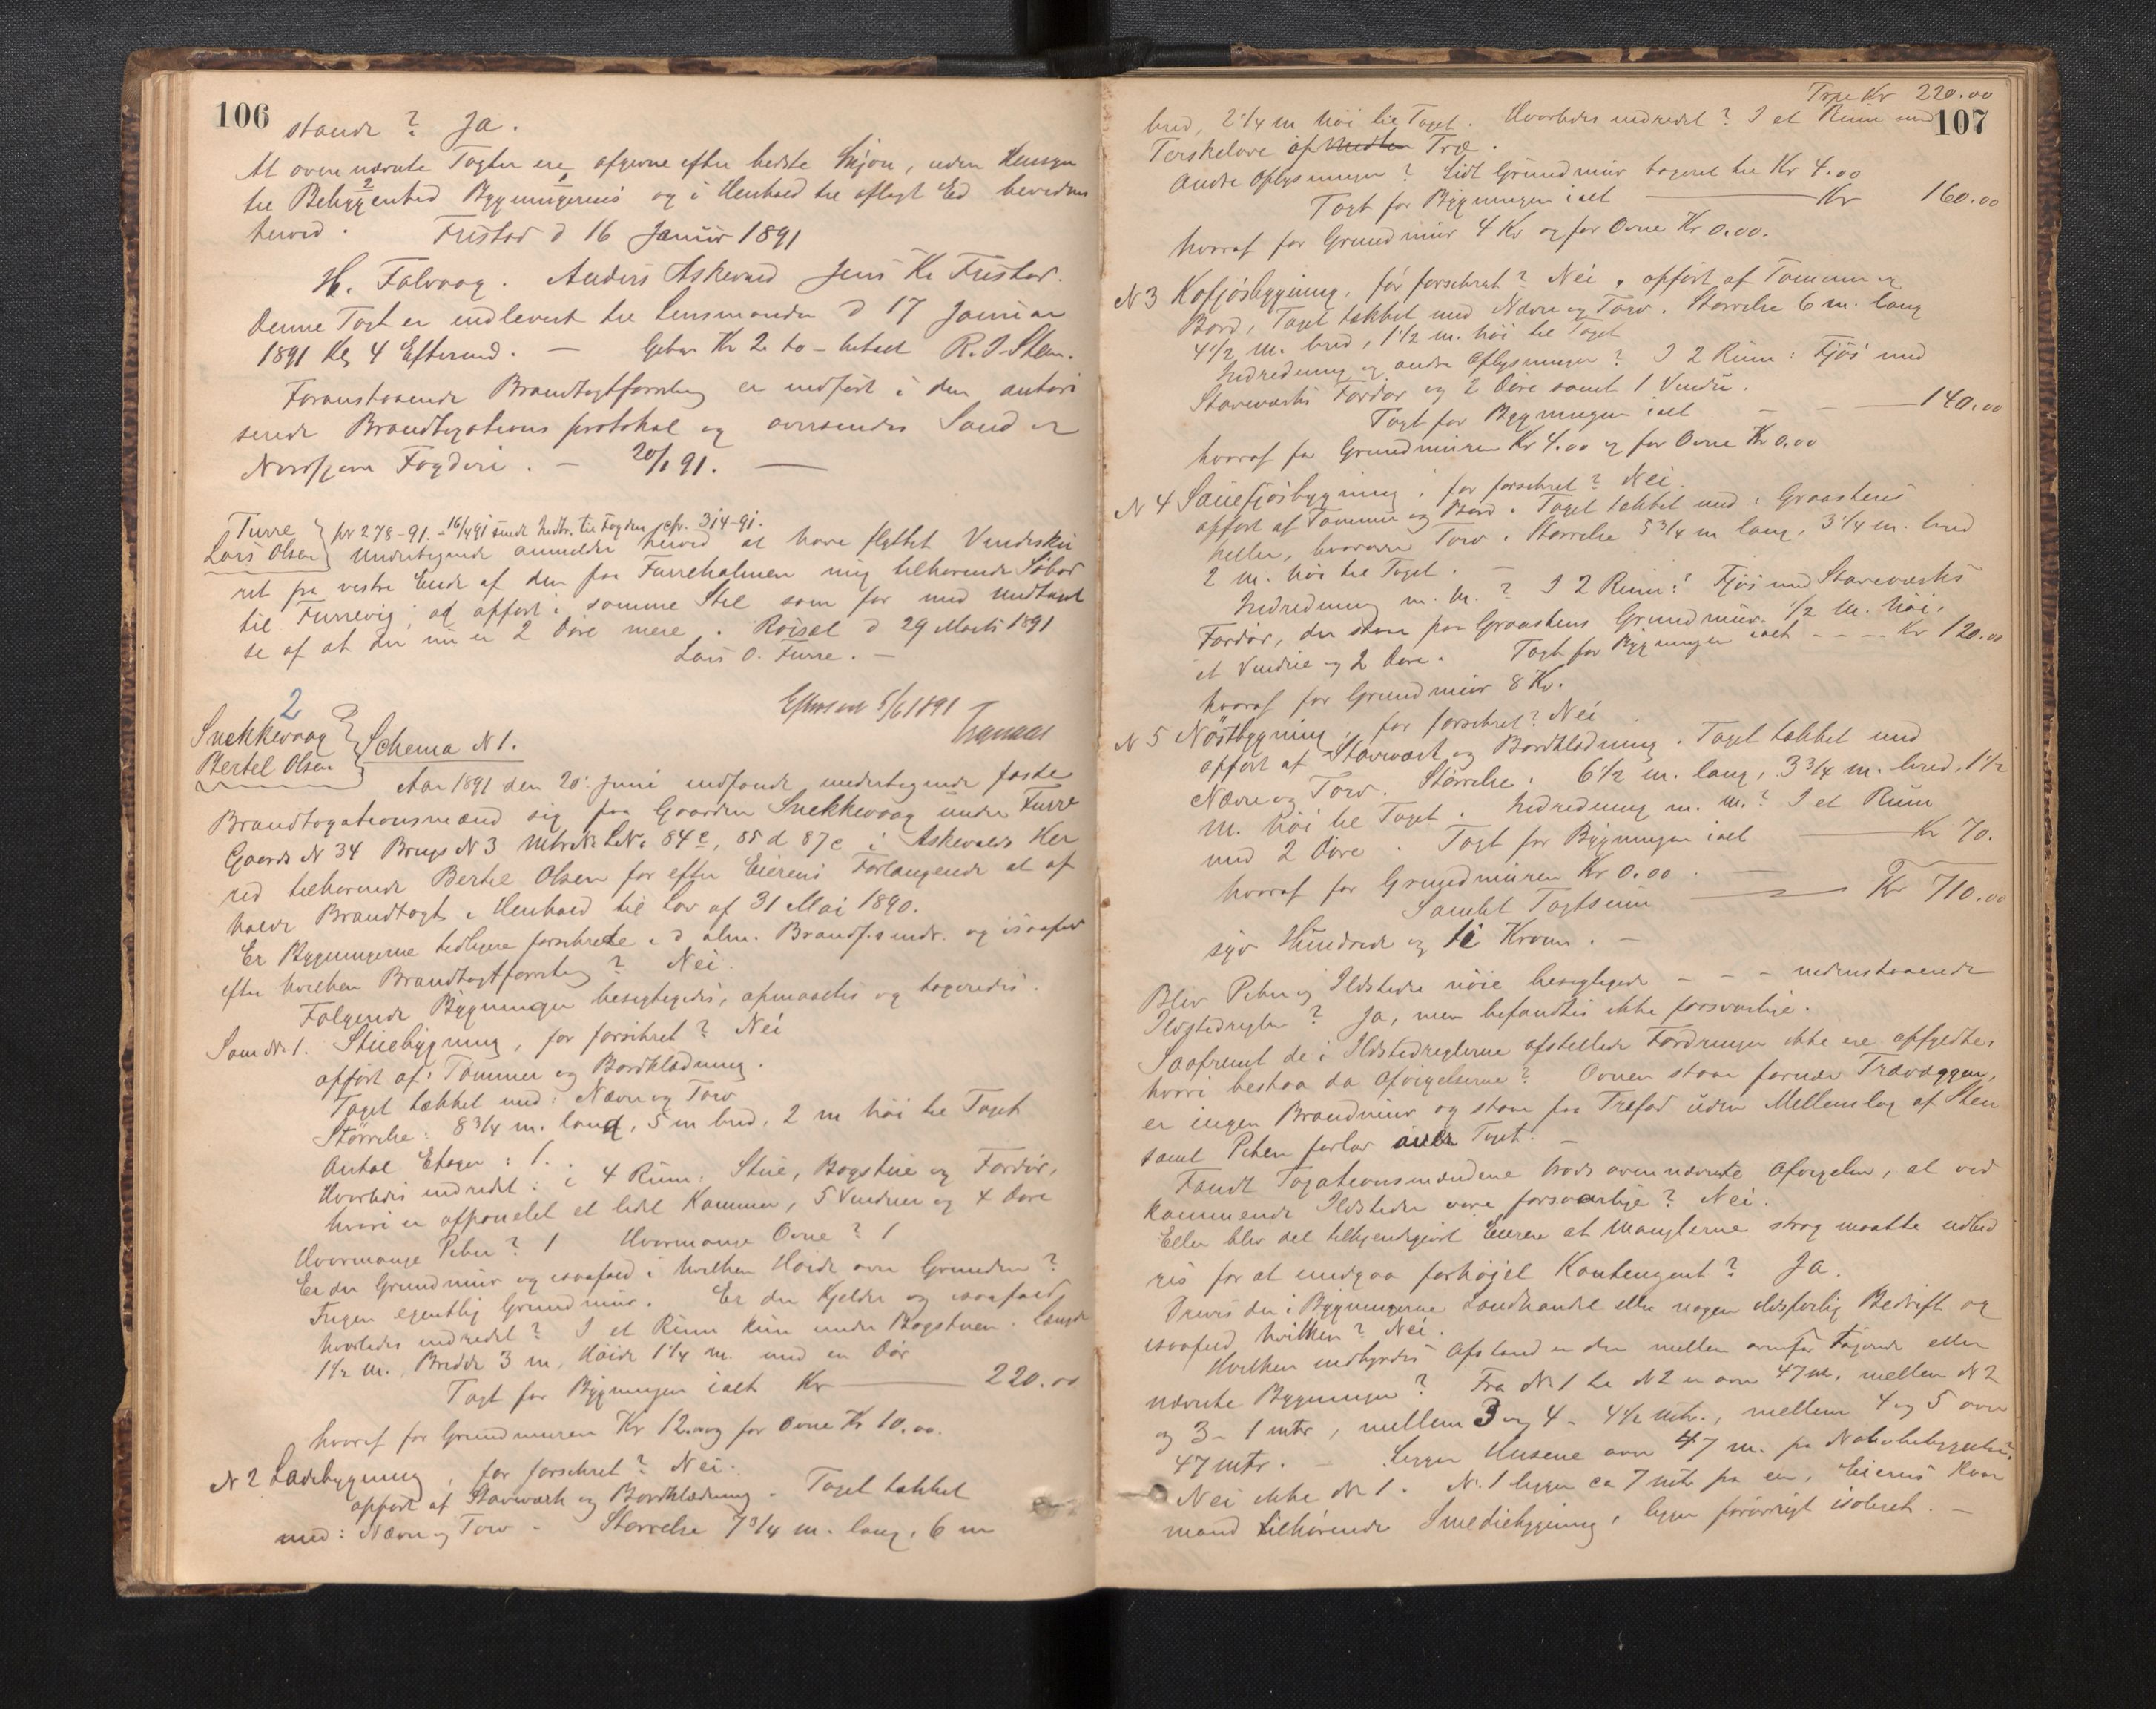 106
stande? Ja.
At ovennævnte Taxter ere afgivne efter bedste Skjøn, uden Hensyn
til Beliggenhed Bygningernes og i Henhold til aflagt Ed bevidnes
herved. Fristad d 16 Januar 1891
H. Folvaag. Anders Askevand Jens Kr Fristad.
Denne Taxt er indleveret til Lensmanden d 17 Januar
1891 Kl 4 Eftermd. — Gebyr Kr 2 to - betalt R. J. Steen.
Foranstaaende Brandtaxtforretng er indført i den autori
serede Brandtaxations protokol og oversendes Sønd og
Nordfjors Fogderi. — 20/1 91. —
Furre
Lars Olsen
Jnr 278-91. - 16/4 91 sendt Indbr. til Fogden, cfr. 314-91.
Undertegnede anmelder herved at have flyttet Vindesku
ret fra vestre Ende af den paa Furreholmen mig tilhørende Søbod
til Furrevig; og opført i samme Stil som før med Undtagel
se af at der nu er 2 Døre mere. Röisel d 29 Marts 1891
Lars O. Furre. —
Eftersat 5/6 1891
2
Snekkevaag
Bertel Olsen
Schema N 1.
Aar 1891 den 20' Juni indfandt undertegnede faste
Brandtaxationsmænd sig paa Gaarden Snekkevaag under Furre
Gaards N 34 Brugs N 3 Mtr. N. L N. 84 c, 85 d 87 c i Askevolds Her
red tilhørende Bertel Olsen for efter Eierens Forlangende at af
holde Brandtaxt i Henhold til Lov af 31 Mai 1890.
Er Bygningerne tidligere forsikrede i d alm. Brandfs. indr. og isaafald
efter hvilken Brandtaxtforretng? Nei.
Følgende Bygninger besigtigedes, opmaaltes og taxeredes.
Som N. 1. Stuebygning, før forsikret? Nei
opført af: Tømmer og Bordklædning.
Taget tækket med: Næver og Torv
Størrelse: 8 3/4 m. lang, 5 m bred, 2 m høi til Taget
Antal Etager: 1.
Hvorledes indredet: i 4 Rum: Stue, Bagstue og Fordør,
hvori er afpanelet et lidet Kammer, 5 Vinduer og 4 Døre
Hvormange Piber? 1 Hvormange Ovne? 1
Er der Grundmur og isaafald i hvilken Høide over Grunden?
Ingen egentlig Grundmur. Er der Kjelder og isaafald
hvorledes indredet? I et Rum kun under Bagstuen. Længde
1 1/2 m., Bredde 3 m, Høide 1 1/4 m. med en Dør
Taxt for Bygningen ialt Kr — 220.00
hvoraf for Grundmuren Kr 12.00 og for Ovne Kr 10.00.
N 2 Ladebygning, før forsikret? Nei.
opført af Stavværk og Bordklædning. Taget tækket
med: Næver og Torv. Størrelse 7 3/4 m. lang, 6 m
Trpt Kr 220.00
107
bred, 2 1/4 m høi til Taget. Hvorledes indredet? I et Rum med
Terskelove af Træ.
Andre Oplysninger? Lidt Grundmur taxeret til Kr 4.00
Taxt for Bygningen ialt — Kr 160.00
hvoraf for Grundmur 4 Kr og for Ovne Kr 0.00.
N 3 Kofjøsbygning, før forsikret? Nei, opført af Tømmer og
Bord, Taget tækket med Næver og Torv. Størrelse 6 m. lang
4 1/2 m. bred, 1 1/2 m. høi til Taget
Indredning og andre Oplysninger? I 2 Rum: Fjøs med
Staveværks Fordør og 2 Døre samt 1 Vindue.
Taxt for Bygningen ialt — — 140.00
hvoraf for Grundmuren Kr 4.00 og for Ovne Kr 0.00
N 4 Sauefjøsbygning, før forsikret? Nei.
opført af Tømmer og Bord. Taget tækket med: Graastens
heller, hvorover Torv. Størrelse 5 3/4 m lang, 3 1/4 m. bred
2 m. høi til Taget. —
Indredning m. m.? I 2 Rum: Fjøs med Staveværks
Fordør, der staar paa Graastens Grundmur 1/2 m. høi,
et Vindue og 2 Døre. Taxt for Bygningen ialt - - - Kr 120.00
hvoraf for Grundmur 8 Kr.
N 5 Nøstbygning, før forsikret? Nei
opført af Stavværk og Bordklædning. Taget tækket med
Næver og Torv. Størrelse: 6 1/2 m. lang, 3 3/4 m. bred, 1 1/2
m. høi til Taget. Indredning m. m.? I et Rum
med 2 Døre. Taxt for Bygningen ialt — Kr 70.
hvoraf for Grundmuren Kr 0.00. —
Samlet Taxtsum — Kr 710.00
syv Hundrede og ti Kroner. —
Blev Piber og Ildsteder nøie besigtigede - - - nedenstaaende
Ildstedregler? Ja, men befandtes ikke forsvarlige.
Saafremt de i Ildstedreglerne opstillede Fordringer ikke ere opfyldte,
hvori bestaa da Afvigelserne? Ovnen staar for nær Trævæggen,
er ingen Brandmur og staar paa Træfod uden Mellemlag af Sten
samt Piben for lav over Taget. —
Fandt Taxationsmændene trods ovennævnte Afvigelser, at ved
kommende Ildsteder vare forsvarlige? Nei.
Eller blev det tilkjendegivet Eieren at Manglerne strax maatte udbed
res for at undgaa forhøjet Kontengent? Ja.
Drives der i Bygningerne Landhandel eller nogen ildsfarlig Bedrift og
isaafald hvilken? Nei.
Hvilken indbyrdes Afstand er der mellem ovenfor taxerede eller
nævnte Bygninger? Fra N. 1 til N 2 er over 47 m, mellem N 2
og 3 - 1 mtr, mellem 3 og 4 - 4 1/2 mtr., mellem 4 og 5 over
47 mtr. — Ligger Husene over 47 m. fra Nabobebyggelse?
Nei ikke N 1. N. 1 ligger ca 7 mtr fra en, Eierens Kaar
mand tilhørende Smediebygning, ligger forøvrigt isoleret. —